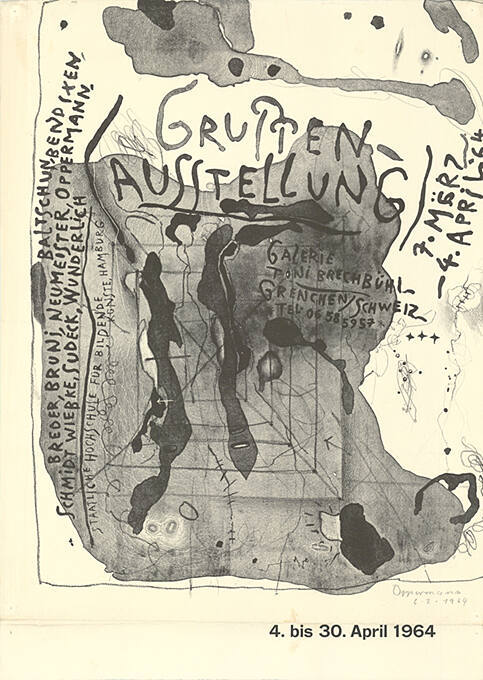 GRUPPEN
AUSSTELLUNG
7. MÄRZ
– 4. APRIL 64
GALERIE
TONI BRECHBÜHL
GRENCHEN/SCHWEIZ
TEL 06585957
BREDER, BRUNI, NEUMEISTER, OPPERMANN
SCHMIDT WIEBKE, SUDECK, WUNDERLICH
STAATLICHE HOCHSCHULE FÜR BILDENDE
KÜNSTE, HAMBURG
Oppermann
1964
4. bis 30. April 1964